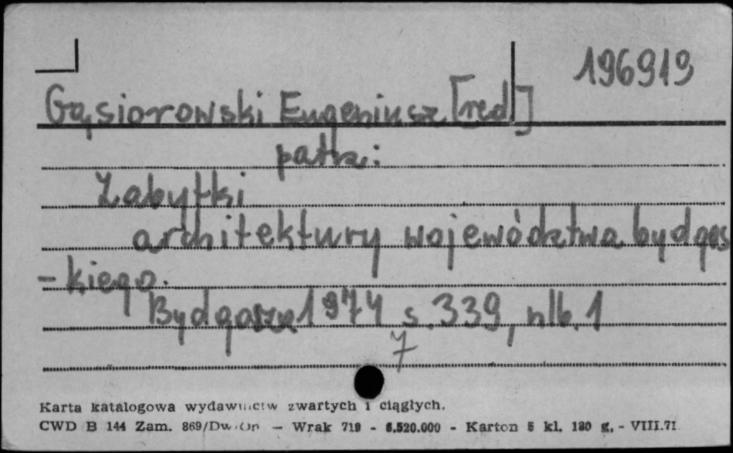 196919
Gąsiorowski Eugeniusz [red]
patrz:
Zabytki
architektury województwa bydgos
-kiego.
Bydgoszcz 1974 s. 339, nlb. 1
7
Karta katalogowa wydawnictw zwartych i ciągłych.
CWD B 144 Zam. 869/Dw-On — Wrak 719 - 6.520.000 - Karton 5 kl. 180 g. - VIII.71